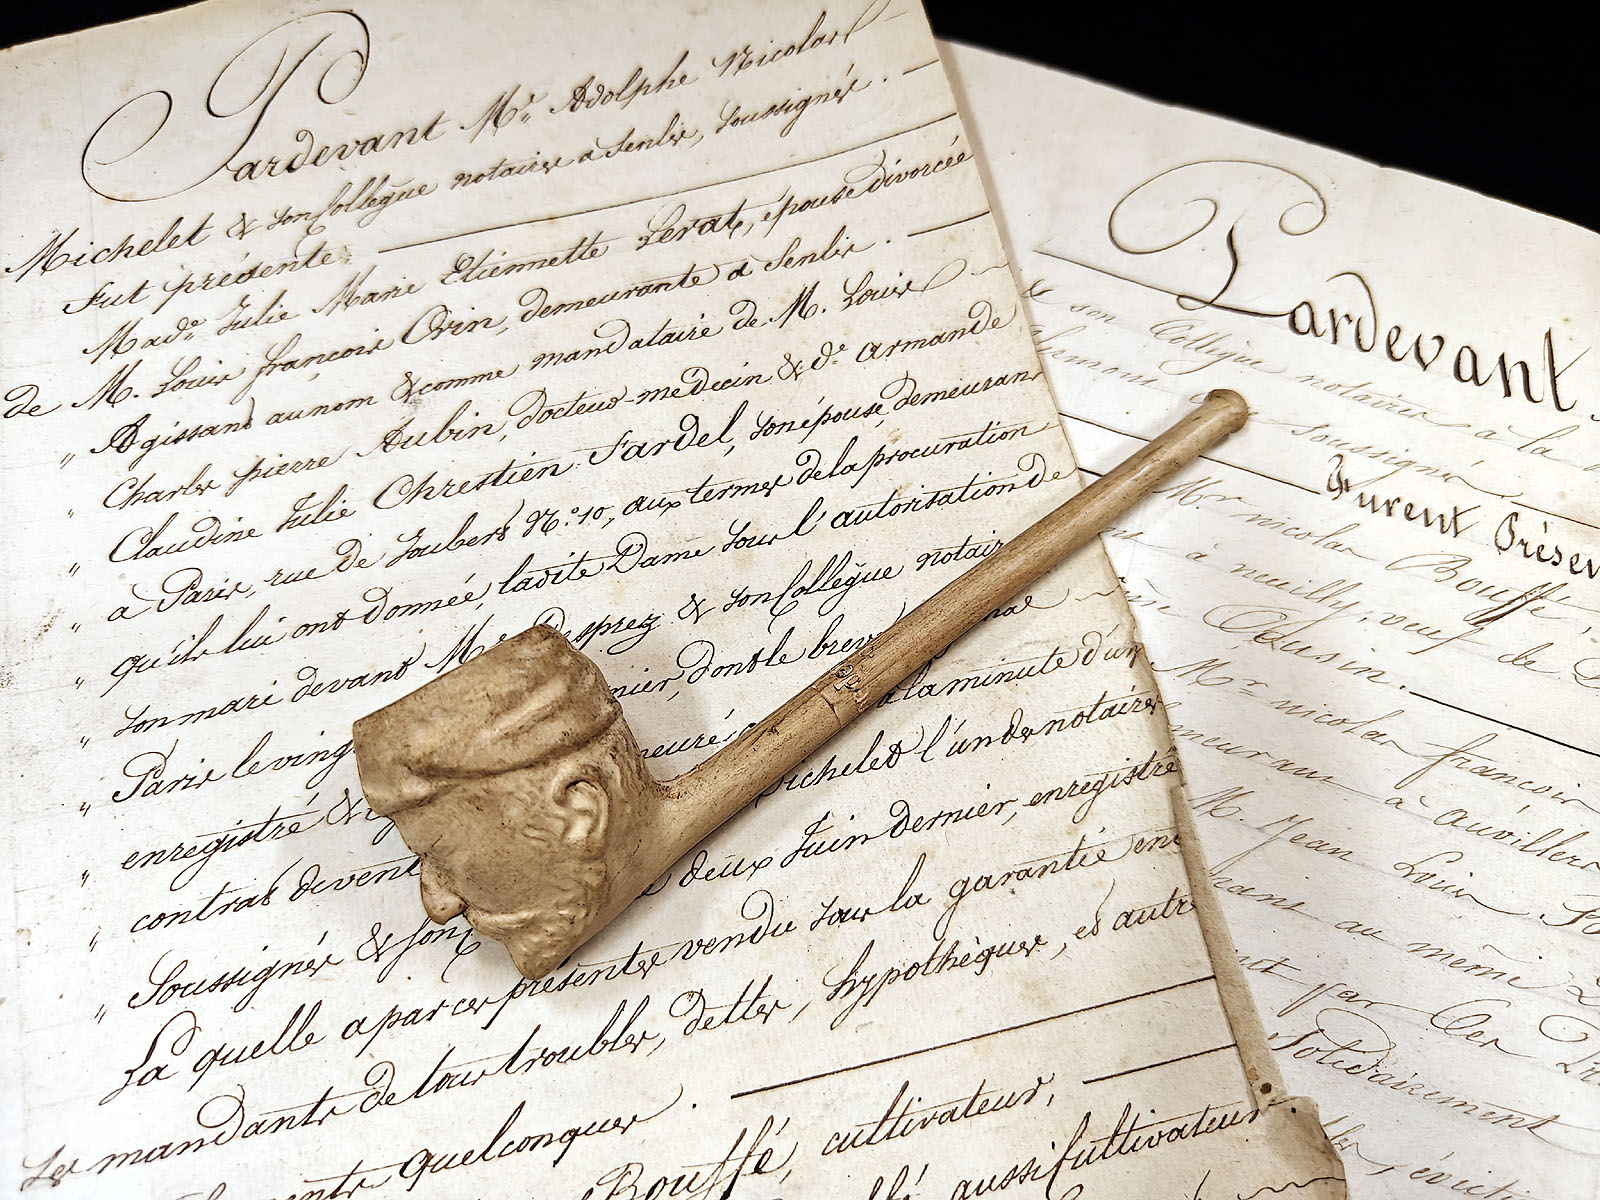 Pardevant Mᵉ. Adolphe Nicolas
Michelet & son Collègue notaires à Senlis, soussignés. —
Fut présente
Madᵉ. Julie Marie Etiennette Lerat, épouse divorcée
de M. Louis françois Orin, demeurante à Senlis. —
" Agissant au nom & comme mandataire de M. Louis
" Charles pierre Aubin, docteur-medecin & dᵉ. armande
" Claudine Julie Chrestien Fardel, son épouse, demeurant
" à Paris, rue de Joubert N.° 10, aux termes de la procuration
" qu'ils lui ont donnée, ladite Dame sous l'autorisation de
" son mari devant Mᵉ Desprez & son Collègue notair
" Paris le ving nier, dont le brev
" enregistré & à la minute d'un
" contrat devent Michelet l'un des notaires
" Soussignés & son deux Juin dernier, enregistré
La quelle a par ces présentes vendu sous la garantie
des mandants de tous troubles, dettes, hypothèques, et autr
quelconques. —
Bouffé, cultivateur, —
aussi Cultivateur
Pardevant
& son Collègue notaires à la
soussignés,
Furent Présen
Mʳ nicolas Bouffé,
à neuilly, veuf de
Cousin. —
Mʳ nicolas françois
à auvillers
M. Jean Louis
au même
par Ces
Solidairement
évict